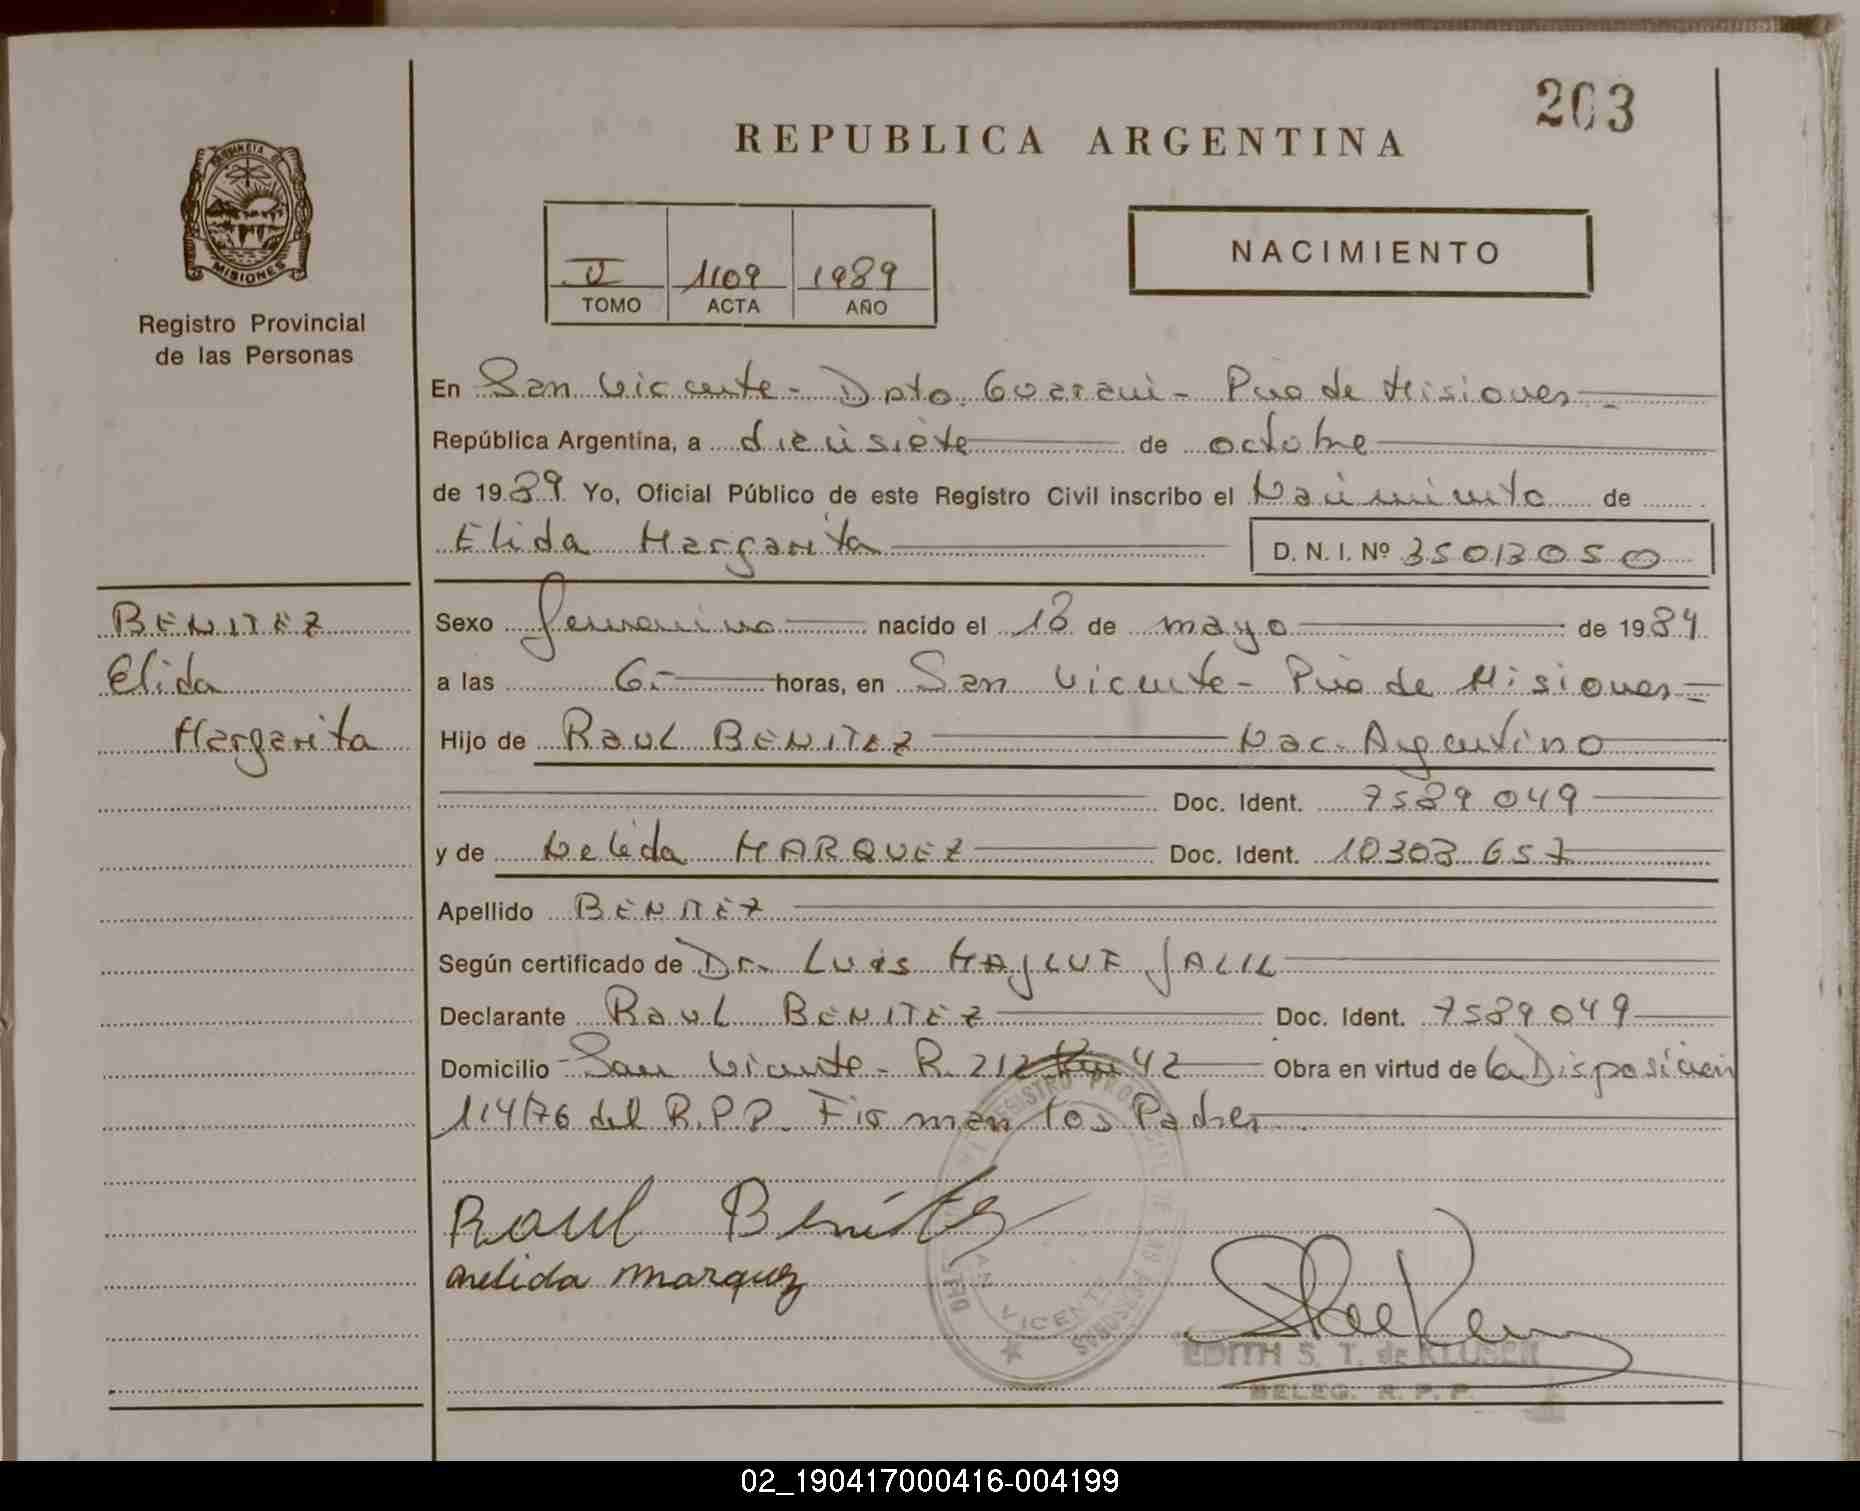 203
REPUBLICA ARGENTINA
PROVINCIA DE
MISIONES
Registro Provincial
de las Personas
V 1109 1989
TOMO ACTA AÑO
NACIMIENTO
En San Vicente - Dpto. Guarani - Pcia de Misiones
República Argentina, a diecisiete de octubre
de 1989 Yo, Oficial Público de este Registro Civil inscribo el Nacimiento de
Elida Margarita D. N. I. Nº 35013050
BENITEZ
Elida
Margarita
Sexo femenino nacido el 18 de mayo de 1984
a las 6.- horas, en San Vicente - Pcia de Misiones
Hijo de Raul BENITEZ Nac. Argentino
Doc. Ident. 7589049
y de Nelida MARQUEZ Doc. Ident. 10303657
Apellido BENITEZ
Según certificado de Dr. Luis JALIL
Declarante Raul BENITEZ Doc. Ident. 7589049
Domicilio San Vicente - R. 212 Km 42 Obra en virtud de la Disposicion
114/76 del R.P.P. Firman los Padres
Raul Benitez
Nelida marquez
VICENTE
EDITH S. T. de KLUSEN
DELEG. R. P. P.
02_190417000416-004199